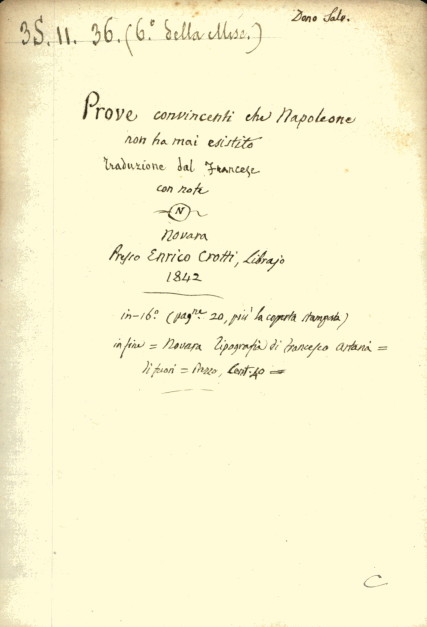 Dono Salv.
3S. 11. 36. (6.º della Misc.)
Prove convincenti che Napoleone
non ha mai esistito
Traduzione dal Francese
con note
N
Novara
Presso Enrico Crotti, Librajo
1842
in-16º (pag.ne 20, più la coperta stampata)
in fine = Novara Tipografia di Francesco Artaria =
di fuori = Prezzo, Cent. 40 =
C